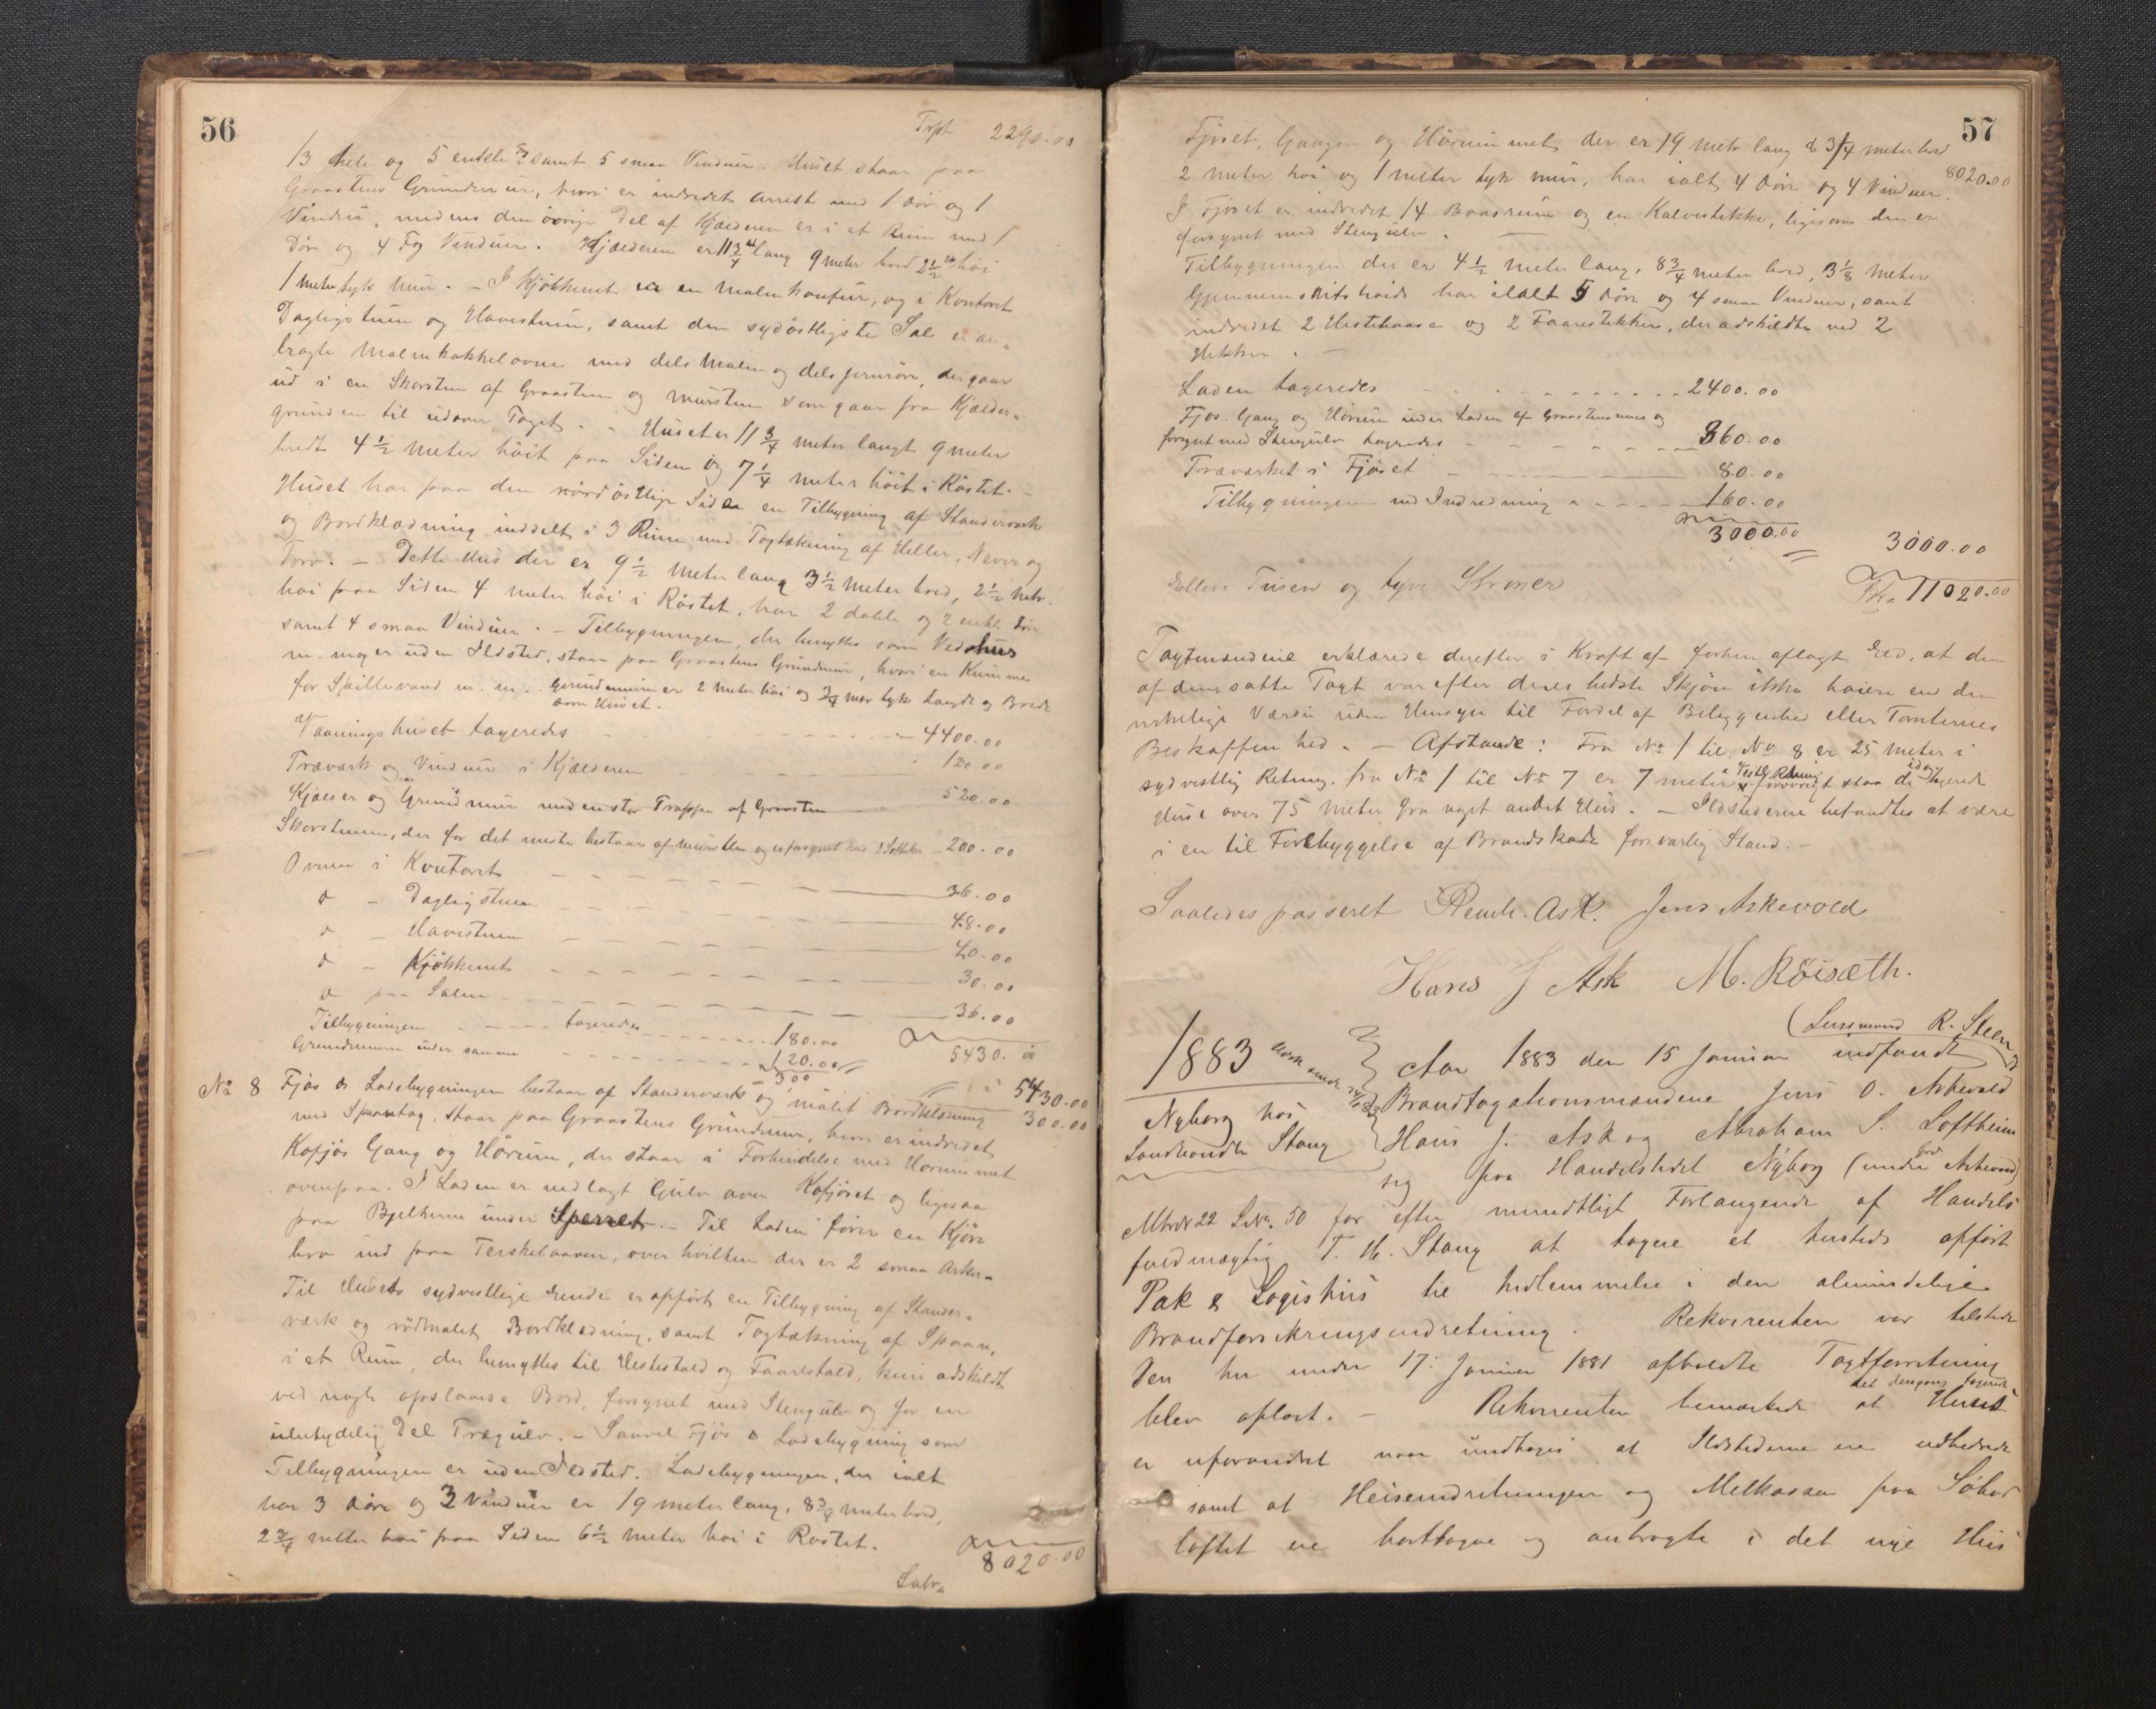 56
Trpt 2290.00
13 hele og 5 enkle Fg samt 5 smaa Vinduer. Huset staar paa
Graastens Grundmur, hvori er indredet Arrest med 1 Dör og 1
Vindu, medens den övrige Del af Kjælderen er i et Rum med 1
Dör og 4 Fg Vinduer. Kjælderen er 11 3/4 m lang 9 meter bred 2 1/2 m höi
1 meter tyk Mur. – I Kjökkenet er en Malmkomfur, og i Kontoret
Dagligstuen og Havestuen, samt den sydöstligste Sal er an-
bragte Malmkakkelovne med dels Malm og dels jernrör, der gaar
ud i en Skorsten af Graasten og Mursten som gaar fra Kjælder-
grunden til udover Taget. – Huset er 11 3/4 meter langt 9 meter
bredt 4 1/2 meter höit paa Siden og 7 1/4 meter höit i Röstet. –
Huset har paa den nordöstlige Side en Tilbygning af Standerværk
og Bordklædning inddelt i 3 Rum med Tagtækning af Heller, Never og
Torv. – Dette Hus der er 9 1/2 meter lang 3 1/2 meter bred, 2 1/2 metr.
höi paa Siden 4 meter höi i Röstet, har 2 doble og 2 enkle Döre
samt 4 smaa Vinduer. – Tilbygningen, der benyttes som Vedehus
m. m. er uden Ildsted, staar paa Graastens Grundmur, hvori en Kumme
for Spillevand m. m. Grundmuren er 2 meter höi og 3/4 meter tyk Længde og Brede
som Huset.
Vaaningshuset taxeredes 4400.00
Træværk og Vinduer i Kjælderen 120.00
Kjælder og Grundmur med en stor Trappe af Graasten 520.00
Skorstenen, der for det meste bestaar af mursten og er forsynet med 2 200.00
Ovnen i Kontoret 36.00
do – Dagligstuen 48.00
do – Havestuen 40.00
do – Kjökkenet 30.00
do paa Salen 36.00
Tilbygningen taxeredes 180.00
Grundmuren under samme 120.00 5430.00
300 5430.00
No 8 Fjös & Ladebygningen bestaar af Standerværk og malet Bordklædning 300.00
med Spaantag, staar paa Graastens Grundmur, hvori er indredet
Kofjös Gang og Hörum, der staar i Forbindelse med Hörummet
ovenpaa. I Laden er nedlagt Gulv over Kofjöset og ligesaa
paa Bjelkerne under Sperret. – Til Laden förer en Kjöre
bro ind paa Terskelaaven, over hvilken der er 2 smaa Arker.
Til Husets sydvestlige Ende er opfört en Tilbygning af Stander-
værk og rödmalet Bordklædning, samt Tagtækning af Spaan,
i et Rum, der benyttes til Hestestald og Faarestald, kun adskildt
ved nogle opslaaede Bord, forsynet med Stengulv og for en
ubetydelig Del Trægulv. – Saavel Fjös & Ladebygning som
Tilbygningen er uden Ildsted. Ladebygningen, der ialt
har 3 Döre og 3 Vinduer er 19 meter lang, 8 3/4 meter bred,
2 3/4 meter höi paa Siden 6 1/2 meter höi i Röstet.
8020.00
Latr.
57
Fjöset, Gangen og Hörummet der er 19 metr lang 8 3/4 meter bred
8020.00
2 meter höi og 1 meter tyk mur, har ialt 4 Döre og 4 Vinduer.
I Fjöset er indredet 14 Baasrum og en Kalvestikke, ligesom den er
forsynet med Stengulv.
Tilbygningen der er 4 1/2 meter lang, 8 3/4 meter bred, 3 1/8 meter
Gjennemsnitshöide har ialt 5 Döre og 4 smaa Vinduer, samt
indredet 2 Hestebaase og 2 Faarestikker, der adskildte ved 2
Hekker. –
Laden taxeredes 2400.00
Fjös. Gang og Hörum under Laden af Graastensmur og
forsynet med Stengulv taxeredes 360.00
Træværket i Fjöset 80.00
Tilbygningen med Indredning 160.00
3000.00 3000.00
Elleve Tusen og tyve Kroner Kr. 11020.00
Taxtmændene erklærede derefter i Kraft af forhen aflagt Eed, at den
af dem satte Taxt var efter deres bedste Skjön ikke höiere end den
virkelige Værdi uden Hensyn til Fordel af Beliggenhed eller Tomternes
Beskaffenhed. – Afstande: Fra No 1 til No 8 er 25 meter i
sydvestlig Retning. fra No 1 til No 7 er 7 meter i Vestlig Retning forövrigt staa de idag taxerede
Huse over 75 meter fra noget andet Hus. – Ildstederne befandtes at være
i en til Forebyggelse af Brandskade forsvarlig Stand. –
Saaledes passeret Remb. Ask. Jens Askevold
Hans J Ask M. Röisæth.
(Lensmand R. Steen)
1883
Nyborg hos
Landhandler Stang
Aar 1883 den 15 Januar indfandt
Brandtaxationsmændene Jens O. Askevold
Hans J. Ask og Abraham S. Loftheim
sig paa Handelstedet Nyborg (under Grd Askevold)
Mtrnr 22 LNr. 50 for efter mundtligt Forlangende af Handels
fuldmægtig T. H. Stang at taxere et hersteds opfört
Pak & Logishus til Indlemmelse i den almindelige
Brandforsikringsindretning. Rekvirenten var tilstede
Den her under 17: Januar 1881 afholdte Taxtforretning
blev oplæst. – Rekvirenten bemærkede at det dengang taxerede Huset
er uforandret naar undtages at Ildstederne ere udbedrede
samt at Heiseindretningen og Melkassen paa Söbod
loftet ere borttagne og anbragte i det nye Hus